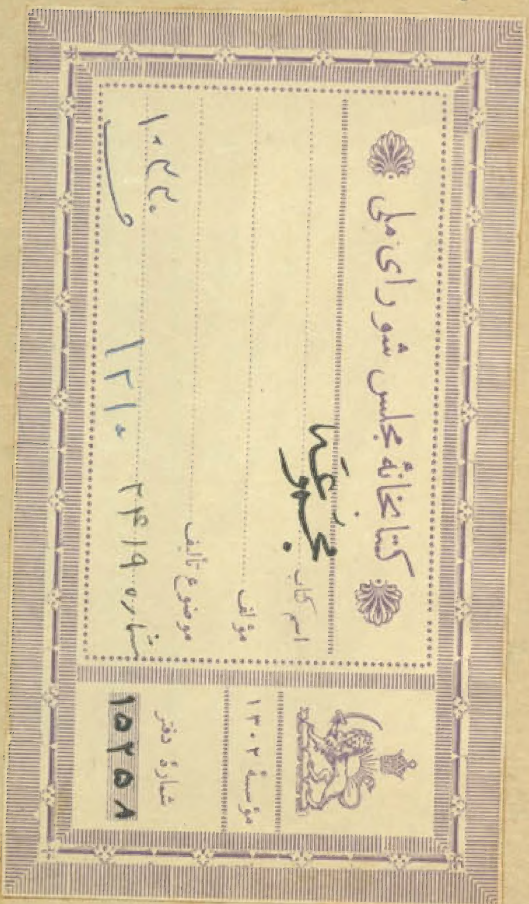 کتابخانهٔ مجلس شورای ملی
اسم کتاب
مؤلف
موضوع تألیف
شماره ۲۴۱۹
۱۲۱۰
۱۰۲۲۰
مؤسسهٔ ۱۳۰۲
شمارهٔ دفتر
۱۵۲۵۸